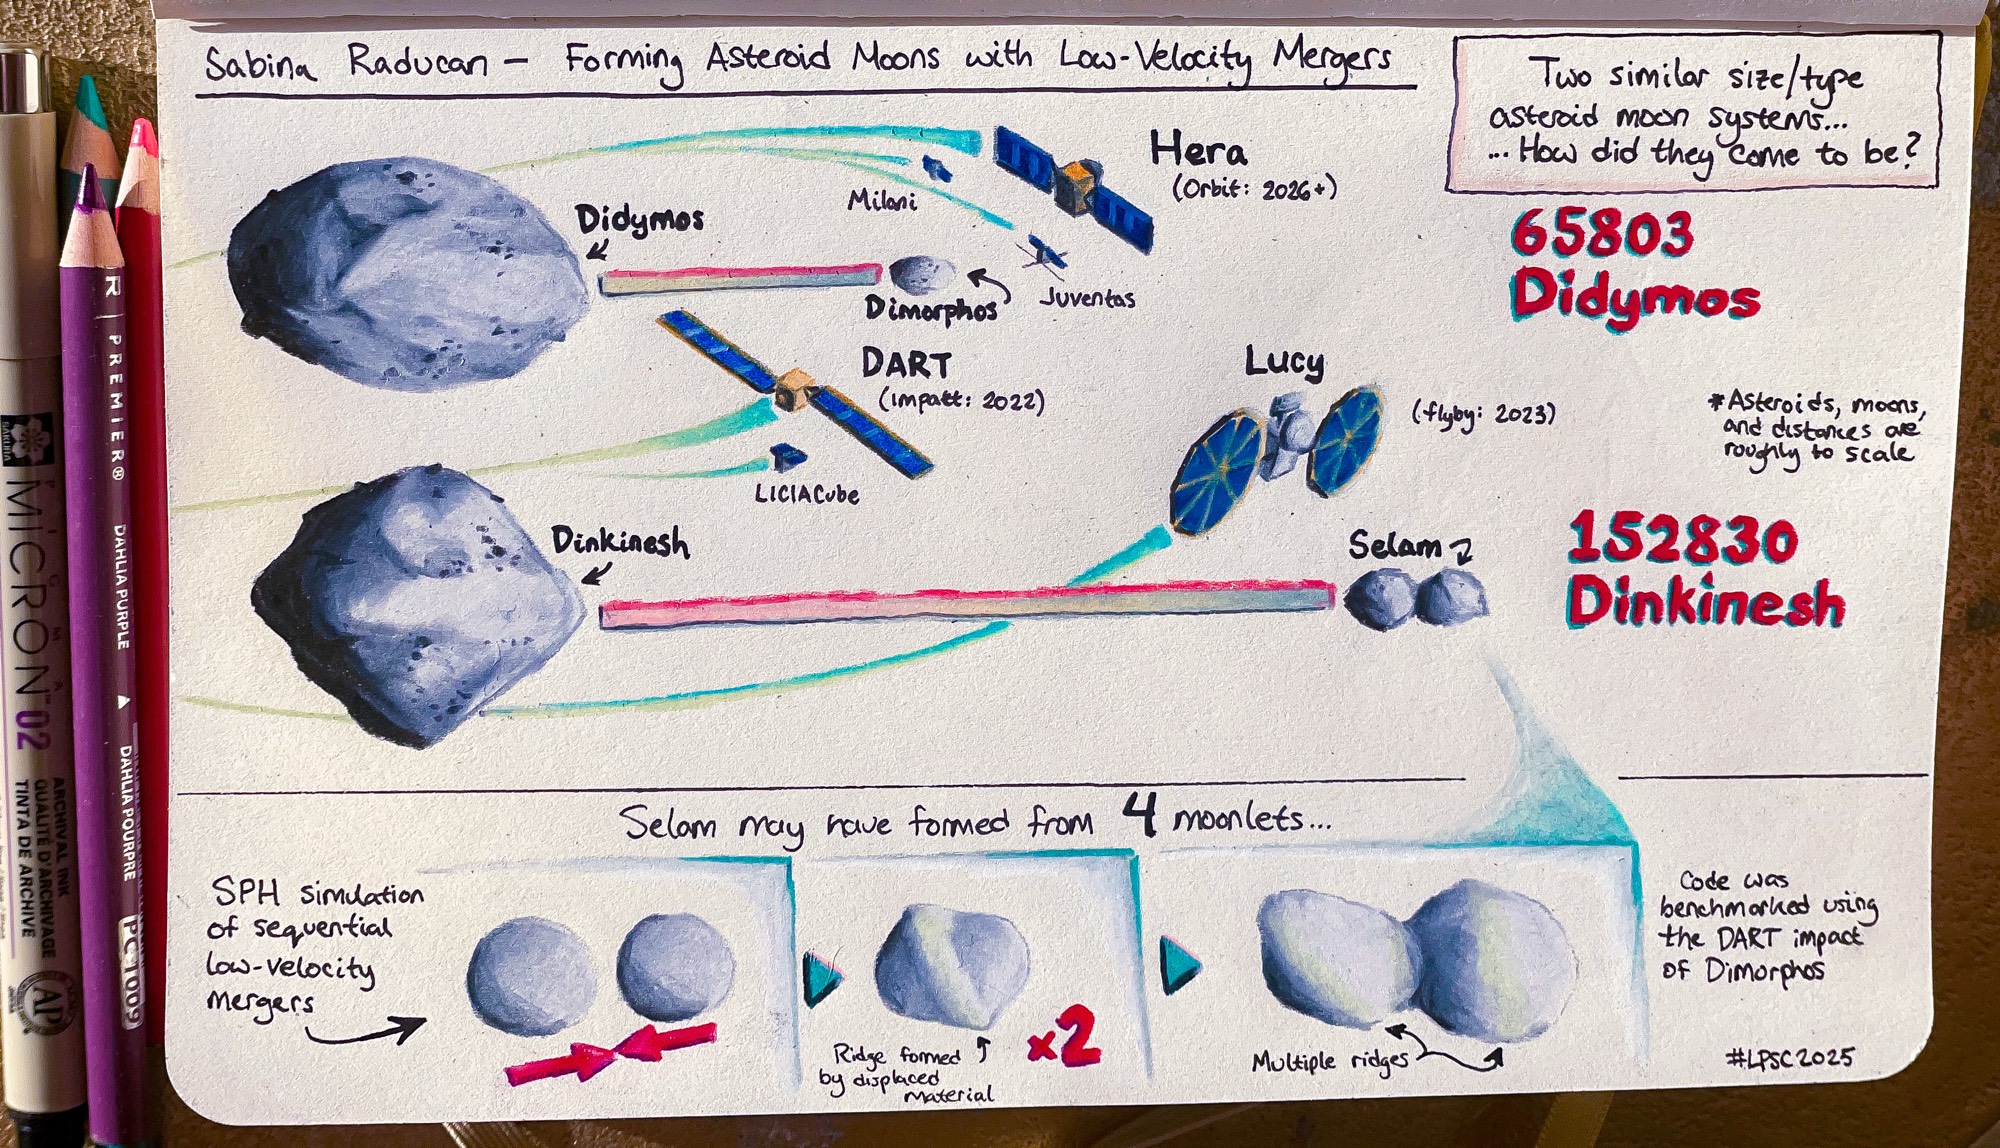 Sabina Raducan – Forming Asteroid Moons with Low-Velocity Mergers
Two similar size/type
asteroid moon systems...
...How did they come to be?
Hera
(Orbit: 2026+)
Milani
Juventas
Didymos
Dimorphos
65803
Didymos
DART
(impact: 2022)
LICIACube
Lucy
(flyby: 2023)
*Asteroids, moons,
and distances are
roughly to scale
Dinkinesh
Selam
152830
Dinkinesh
Selam may have formed from 4 moonlets...
SPH simulation
of sequential
low-velocity
mergers
Ridge formed
by displaced
material
x2
Multiple ridges
Code was
benchmarked using
the DART impact
of Dimorphos
#LPSC2025
SAKURA
MICRON 02
ARCHIVAL INK
QUALITÉ D'ARCHIVAGE
TINTA DE ARCHIVE
AP
R | PREMIER®
DAHLIA PURPLE ▲ DAHLIA POURPRE
PC1009